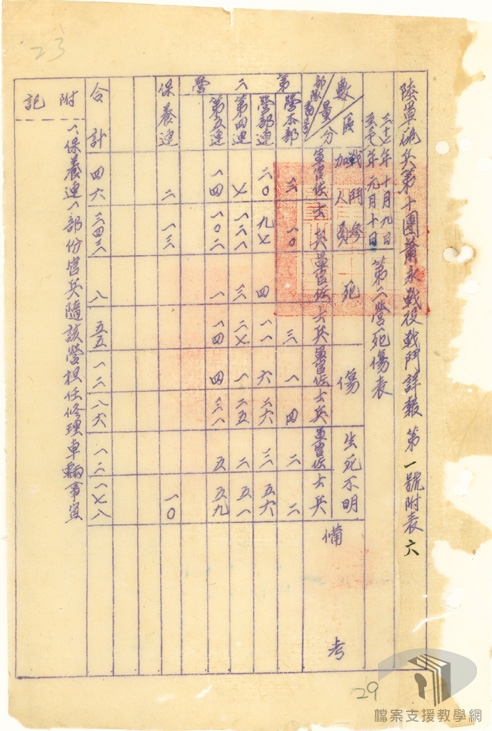 陸軍砲兵第十團蕭永戰役戰鬥詳報 第一號附表六
三十七年十月九日
三十八年元月十日
第二營死傷表
數量
區分
部隊番號
戰鬥參
加人員
死
傷
生死不明
備考
軍官佐 士兵 軍官佐 士兵 軍官佐 士兵 軍官佐 士兵
第二營
營本部 三 一〇 三 一 四 二 二
營部連 二〇 九七 四 一一 六 二六 三 五六
第四連 七 一二一 三 二七 一 二五 二 五一
第五連 一四 一〇二 一 一四 四 三一 五 五九
保養連 二 一三 一〇
合計 四六 三四三 八 五五 一二 八六 一二 一七八
附記
一、保養連一部份官兵隨該營担任修理車輛事宜
23
29
檔案支援教學網